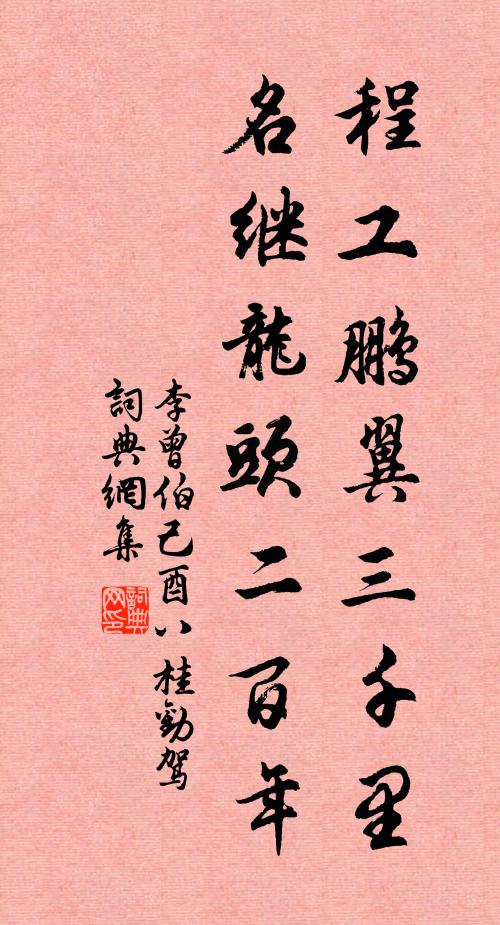 程工鹏翼三千里
名继龍頭二百年
李曾伯己酉八桂勸駕
詞典網集
詞典网印